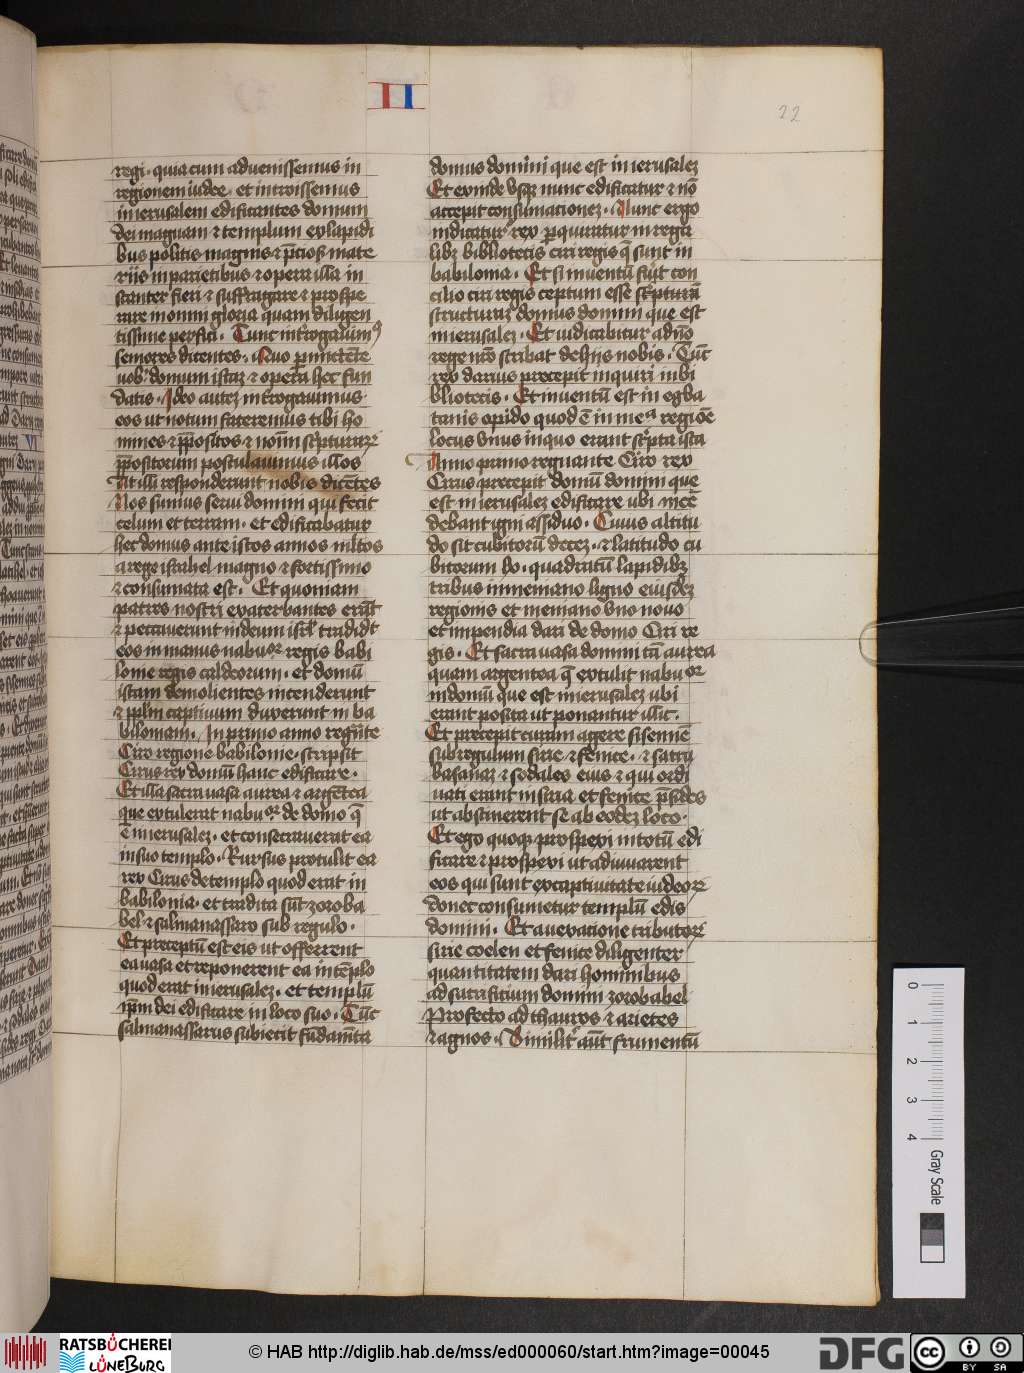 II
22
regi · quia cum advenissemus in
regionem iudee · et introissemus
in ierusalem edificantes domum
dei magnam ⁊ templum ex lapidi
bus politis magnis ⁊ p̄ciosis mate
riis in parietibus ⁊ opera illa in
stanter fieri ⁊ suffragare ⁊ prospe
rare in omni gloria quam diligen
tissime perfici · Tunc int̄rogavim⁹
seniores dicentes · Quo p̱mittēte
vob̄ domum istaz ⁊ opera hec fun
datis · Ideo autez int̄rogavimus
eos ut notum faceremus tibi ho
mines ⁊ p̄positos ⁊ noīm sc̄pturaꝝ
p̄positorum postulavimus illos
At illi responderunt nobis dicētes
Nos sumus servi domini qui fecit
celum et terram · et edificabatur
hec domus ante istos annos ml̄tos
a rege israhel magno ⁊ fortissimo
⁊ consumata est · Et quoniam
patres nostri exacerbantes erāt
⁊ peccaverunt in deum isrl̄ tradidt
eos in manus nabuᵒʳ regis babi
lonie regis caldeorum · et domū
istam demolientes incenderunt
⁊ ppl̄m captivum duxerunt in ba
biloniam · In primo anno regn̄te
Ciro regione babilonie · scripsit
Cirus rex domū hanc edificare ·
Et illa sacra vasa aurea ⁊ argētea
que extulerat nabuᵒʳ de domo q̄
ē in ierusalez · et consecraverat ea
in suo templo · Rursus protulit ea
rex Cirus de templo quod erat in
babilonia · et tradita sūt zoroba
bel ⁊ salmanassaro sub regulo ·
Et preceptū est eis ut offerrent
ea vasa et reponerent ea in tēplo
quod erat in ierusalez · et templū
ip̄m dei edificare in loco suo · Tūc
salmanassarus subiecit fūdam̄ta
domus domini que est in ierusalez
Et exinde usqꝫ nunc edificatur ⁊ nō
accepit consumacionez · Nunc ergo
indicatur rex p̱quiratur in regal̄
libꝫ bibliotecis ciri regis q̄ sunt in
babilonia · Et si inventū fūit con
cilio ciri regis ceptum esse sc̄pturā
structuraz domus domini que est
in ierusalez · Et iudicabitur a dn̄o
rege nr̄o scribat de hiis nobis · Tūc
rex darius precepit inquiri in bi
bliotecis · Et inventū est in egba
tanis opido quod ē in meᵃ regiōe
locus unus in quo erant sc̄pta ista
Anno primo regnante Ciro rex
Cirus precepit domū domini que
est in ierusalez edificare ubi incē
debant igni assiduo · Cuius altitu
do sit cubitorū decez · ⁊ latitudo cu
bitorum lx · quadratū lapidibꝫ
tribus in meniano ligno eiusdez
regionis et meniano uno novo
et impendia dari de domo Ciri re
gis · Et sacra vasa domini tā aurea
quam argentea q̄ extulit nabuᵒʳ
in domū que est in ierusalez ubi
erant posita ut ponantur illic ·
Et precepit curam agere sisennē
sub regulum sirie ⁊ fenice · ⁊ satra
basanaz ⁊ sodales eius ⁊ qui ordi
nati erant in siria et fenice p̄sides
ut abstinerent se ab eodez loco ·
Et ego quoqꝫ prospexi in totū edi
ficare ⁊ prospexi ut adiuvarent
eos qui sunt ex captivitate iudeoꝝ
donec consumetur templū edis
domini · Et a vexacione tributoꝝ
sirie coelen et fenice diligenter
quantitatem dari hominibus
ad sacrificium domini zorobabel
Profecto ad thauros ⁊ arietes
⁊ agnos · Similit̄ aūt frumentū
0 1 2 3 4
Gray Scale
RATSBÜCHEREI
LÜNEBURG
© HAB http://diglib.hab.de/mss/ed000060/start.htm?image=00045
DFG
cc
BY SA